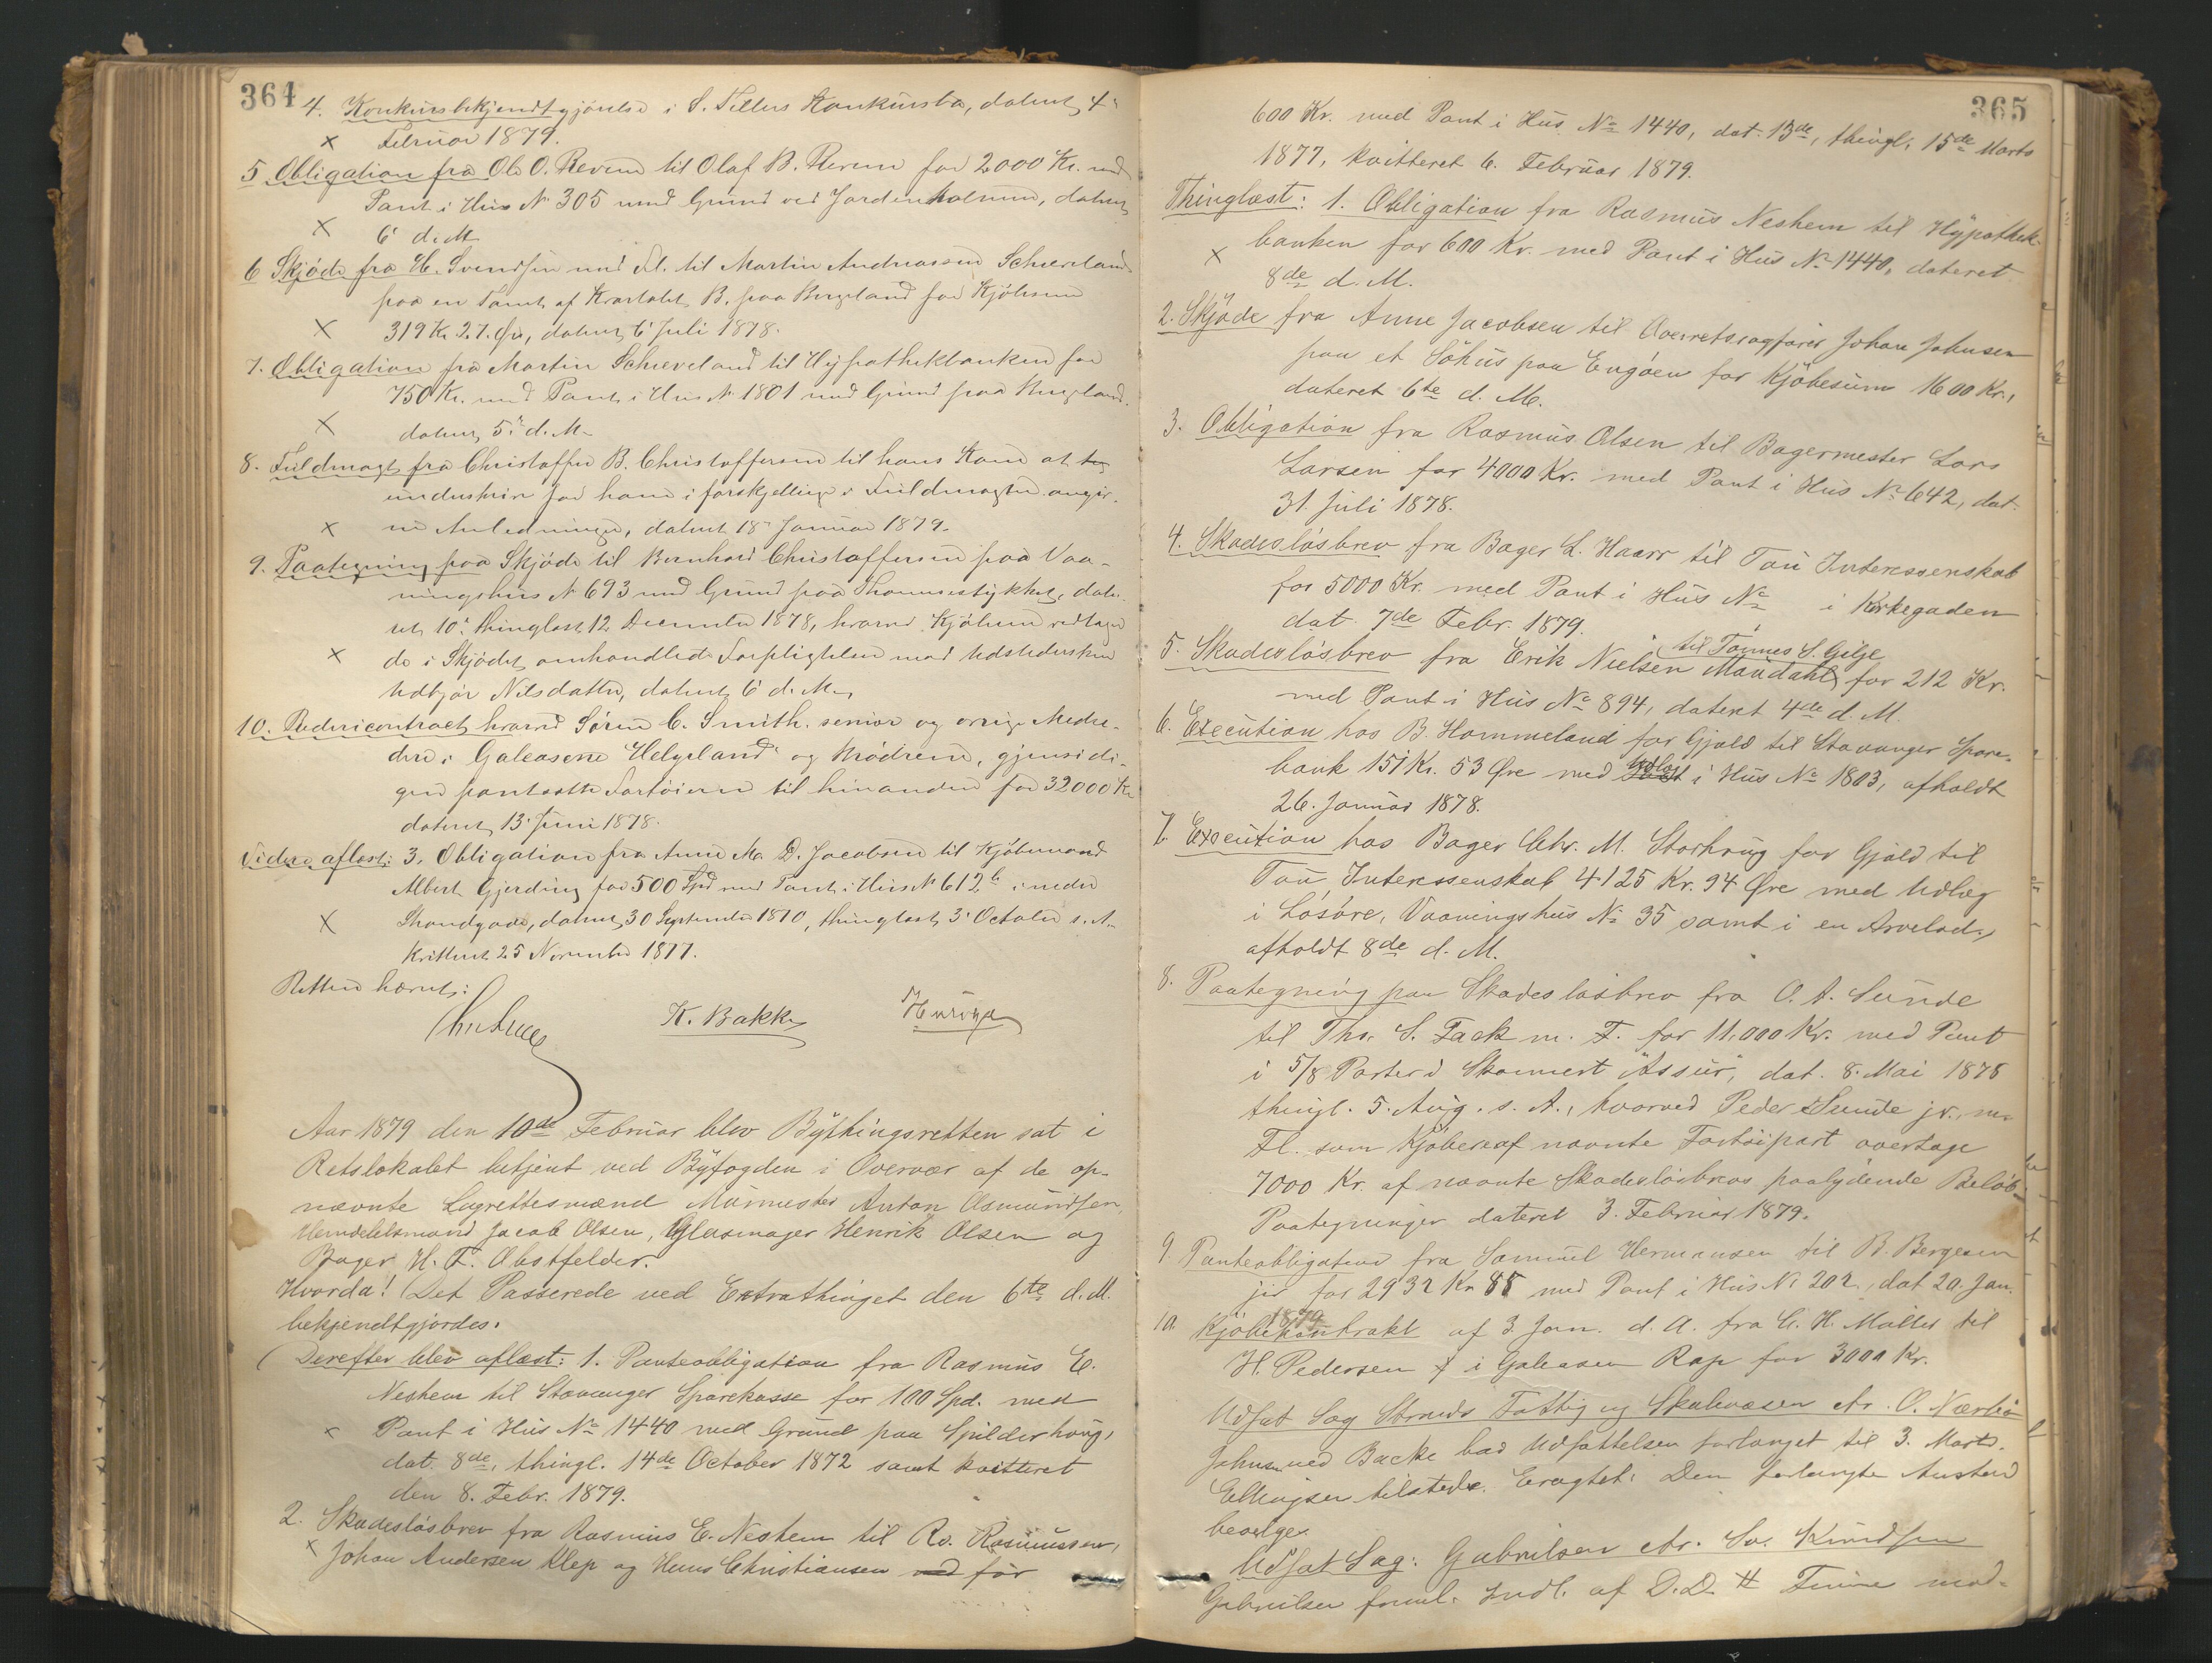 364
4. Konkursbekjendtgjørelse i S. Tillers Konkursbo, dateret 4de
Februar 1879.
5 Obligation fra Ole O. Revem til Olaf B. Revem for 2000 Kr. med
Pant i Hus No 305 med Grund ved Jorden holmen, dateret
6' d. M.
6 Skjøde fra H. Svendsen med Fl. til Martin Andreassen Schieveland
paa en Tomt af Kvartalet B. paa Bergeland for Kjøbesum
319 Kr. 27. Øre, dateret 6' Juli 1878.
7. Obligation fra Martin Schieveland til Hypothekbanken for
750 Kr. med Pant i Hus No 1801 med Grund paa Bergeland.
dateret 5' d. M.
8. Fuldmagt fra Christoffer B. Christoffersen til hans Kone at
underskrive for ham i forskjellige i Fuldmagten angiv-
ne Anledninger, dateret 18 Januar 1879.
9. Paategning paa Skjøde til Bernhard Christoffersen paa Vaa-
ningshus No 693 med Grund paa Thomsestykket, date-
ret 10' thinglæst 12 December 1878, hvorved Kjøberen vedtager
de i Skjødet omhandlede Forpligtelser mod Udstedersken
Udbjør Nilsdatter, dateret 6' d. M.
10. Redericontract hvorved Søren C. Smith. senior og øvrige Medre-
dere i Galeaserne "Helgeland" og Brødrene, gjensidi-
gen pantsætte Fartøierne til hinanden for 32000 Kr
dateret 13' Juni 1878.
Videre aflæst: 3. Obligation fra Anne M. D. Jacobsen til Kjøbmand
Albert Gjerding for 500 Spd med Pant i Hus No 612b i nedre
Strandgade, dateret 30 September 1870, thinglæst 3' October s. A.
Kvitteret 25 November 1877.
Retten hævet:
K. Bakke
Aar 1879 den 10de Februar blev Bythingsretten sat i
Retslokalet betjent ved Byfogden i Overvær af de op-
nævnte Lagrettesmænd Murmester Anton Asmundsen,
Handelsmand Jacob Olsen, Glasmager Henrik Olsen og
Bager H. F. Obstfelder.
Hvorda! Det Passerede ved Extrathinget den 6te d. M.
bekjendtgjordes.
Derefter blev aflæst: 1. Panteobligation fra Rasmus E.
Neshem til Stavanger Sparekasse for 100 Spd. med
Pant i Hus No 1440 med Grund paa Spilderhaug,
dat. 8de, thingl. 14de October 1872 samt kvitteret
den 8. Febr. 1879.
2. Skadesløsbrev fra Rasmus E. Neshem til Rs. Rasmussen,
Johan Andersen Klep og Hans Christiansen for
365
600 Kr. med Pant i Hus No 1440, dat. 13de, thingl. 15de Marts
1877, kvitteret 6. Februar 1879.
Thinglæst: 1. Obligation fra Rasmus Neshem til Hypothek-
banken for 600 Kr. med Pant i Hus No 1440, dateret
8de d. M.
2. Skjøde fra Anne Jacobsen til Overretssagfører Johan Johnsen
paa et Søhus paa Engøen for Kjøbesum 1600 Kr.,
dateret 6te d. M.
3. Obligation fra Rasmus Olsen til Bagermester Lars
Larsen for 4000 Kr. med Pant i Hus No 642, dat.
31. Juli 1878.
4. Skadesløsbrev fra Bager L. Haarr til Tou Interessenskab
for 5000 Kr. med Pant i Hus No i Kirkegaden
dat. 7de Febr. 1879.
til Tønnes S. Gilje
5. Skadesløsbrev fra Erik Nielsen Maudahl for 212 Kr.
med Pant i Hus No 894, dateret 4de d. M.
6. Execution hos B. Hommeland for Gjæld til Stavanger Spare-
bank 151 Kr. 53 Øre med Udlæg i Hus No 1803, afholdt
26. Januar 1878.
7. Execution hos Bager Chr. M. Storhaug for Gjæld til
Tou Interessenskab 4125 Kr. 94 Øre med Udlæg
i Løsøre, Vaaningshus No 35 samt i en Arvelod,
afholdt 8de d. M.
8. Paategning paa Skadesløsbrev fra O. A. Sunde
til Ths. S. Fack m. F. for 11,000 Kr. med Pant
i 5/8 Parter i Skonnert "Assur", dat. 8. Mai 1878
thingl. 5. Aug. s. A., hvorved Peder Sunde jr. m.
Fl. som Kjøbere af nævnte Fartøipart overtage
7000 Kr. af nævnte Skadesløsbrevs paalydende Beløb.
Paategningen dateret 3. Februar 1879.
9 Panteobligation fra Samuel Hermansen til B. Bergesen
jr for 2932 Kr 85 med Pant i Hus No 202, dat 20. Jan.
1879
10. Kjøbekontrakt af 3. Jan. d. A. fra C. H. Møller til
H. Pedersen i Galeasen Rap for 3000 Kr.
Udsat Sag Strands Fattig og Skolevæsen ctr. O. Nærbø
Johnsen ved Backe bad Udsættelsen forlænget til 3. Marts.
Ellingsen tilstede. Eragtet: Den forlangte Anstand
bevilges.
Udsat Sag: Gabrielsen ctr. Sv. Knudsen
Gabrielsen freml. Indl. af D. D.